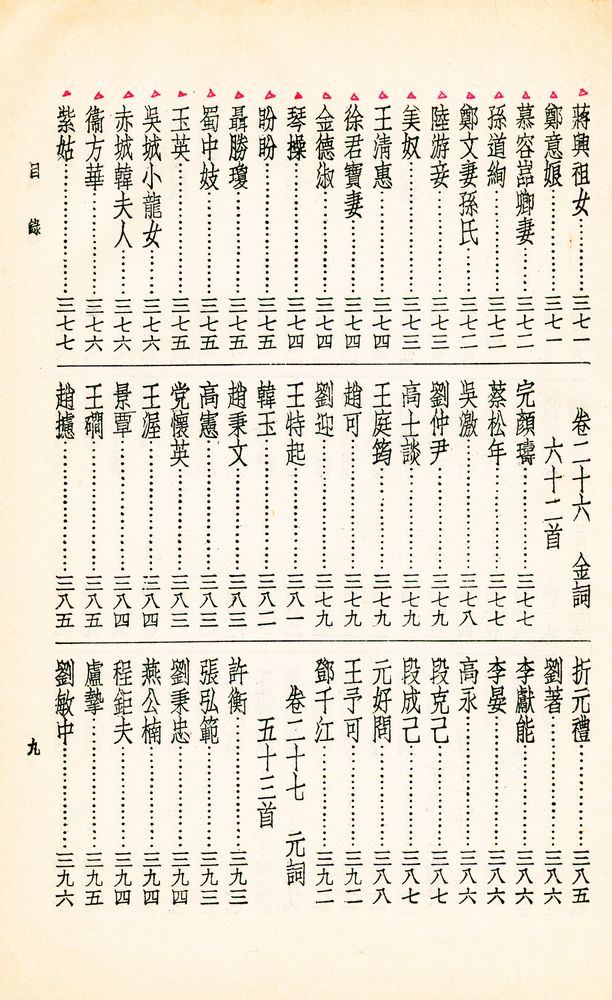 蔣興祖女……………三七一
鄭意娘……………三七一
慕容嵓卿妻……………三七二
孫道絢……………三七二
鄭文妻孫氏……………三七二
陸游妾……………三七三
美奴……………三七三
王清惠……………三七四
徐君寶妻……………三七四
金德淑……………三七四
琴操……………三七四
盼盼……………三七五
聶勝瓊……………三七五
蜀中妓……………三七五
玉英……………三七五
吳城小龍女……………三七六
赤城韓夫人……………三七六
衞方華……………三七六
紫姑……………三七七
卷二十六 金詞
六十二首
完顏璹……………三七七
蔡松年……………三七七
吳激……………三七八
劉仲尹……………三七九
高士談……………三七九
王庭筠……………三七九
趙可……………三七九
劉迎……………三七九
王特起……………三八一
韓玉……………三八二
趙秉文……………三八三
高憲……………三八三
党懷英……………三八三
王渥……………三八四
景覃……………三八四
王磵……………三八五
趙攄……………三八五
折元禮……………三八五
劉著……………三八六
李獻能……………三八六
李晏……………三八六
高永……………三八六
段克己……………三八七
段成己……………三八七
元好問……………三八八
王予可……………三九二
鄧千江……………三九二
卷二十七 元詞
五十三首
許衡……………三九三
張弘範……………三九三
劉秉忠……………三九四
燕公楠……………三九四
程鉅夫……………三九四
盧摯……………三九五
劉敏中……………三九六
目錄
九